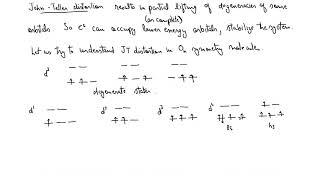 Jahn-Teller distortion results in partial lifting of degeneracies of some
(in complete)
orbitals. So e⁻s can occupy lower energy orbitals, stabilize the system.
Let us try to understand JT distortion in Oh symmetry molecule.
d²
degenerate states.
d¹ d² d³ d⁴
ls hs